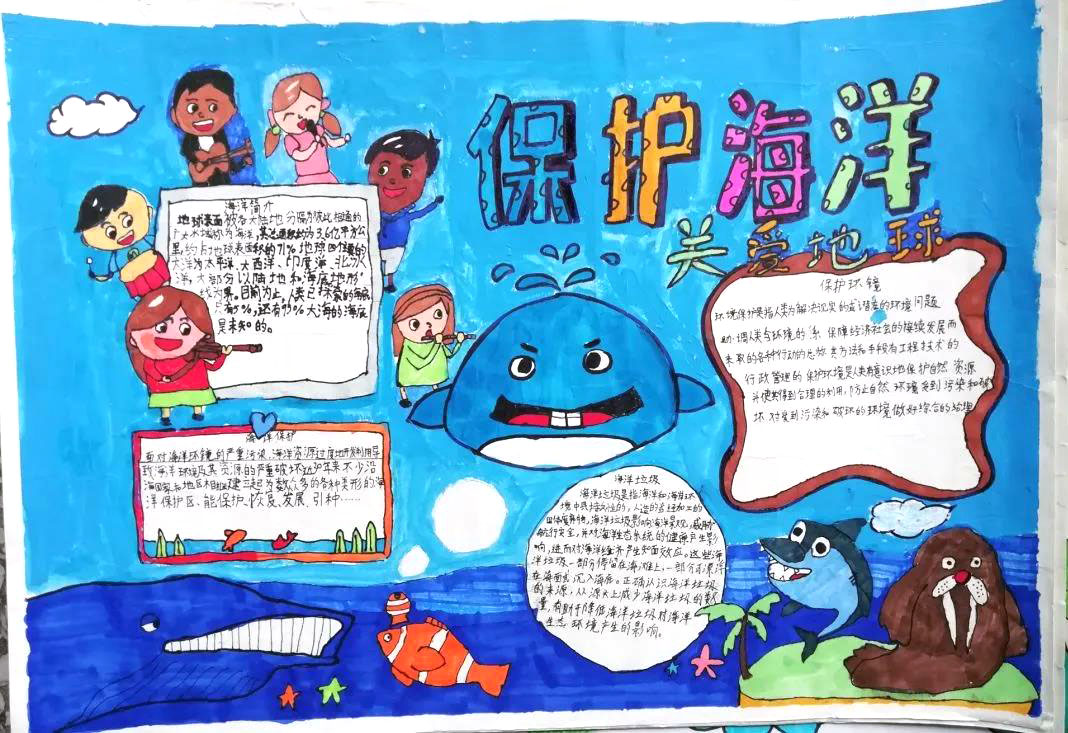 保护海洋
关爱地球
海洋简介
地球表面被各大陆地分隔为彼此相通的
广大水域称为海洋,其总面积约为3.6亿平方公
里,约占地球表面积的71%地球四个主要的
大洋为太平洋、大西洋、印度洋、北冰
洋,大部分以陆地和海底地形
线为界。目前为止,人类已探索的海底
只有5%,还有95%大海的海底
是未知的。
海洋保护
面对海洋环镜的严重污染、海洋资源过度地开发利用导
致海洋环境及其资源的严重破坏近30年来不少沿
海国家和地区相继建立起为数众多的各种类形的海
洋保护区、能保护、恢复、发展、引种……
保护环镜
环境保护是指人类为解决现实的或潜在的环境问题
协调人类与环境的 系 保障经济社会的持续发展而
采取的各种行动的总称 其方法和手段有工程技术的
行政管理的 保护环境是人类有意识地保护自然 资源
并使其得到合理的利用,防止自然 环境 受到 污染和破
坏 对受到污染和破坏的环境做好综合的治理
海洋垃圾
海洋垃圾是指海洋和海岸环
境中具持久性的,人造的或经加工的
固体废弃物,海洋垃圾影响海洋景观,威胁
航行安全,并对海洋生态系统的健康产生影
响,进而对海洋经济产生负面效应。这些海
洋垃圾一部分停留在海滩上,一部分可漂浮
在海面或沉入海底。正确认识海洋垃圾
的来源,从源头上减少海洋垃圾的数
量,有助于降低海洋垃圾对海洋
生态环境产生的影响。